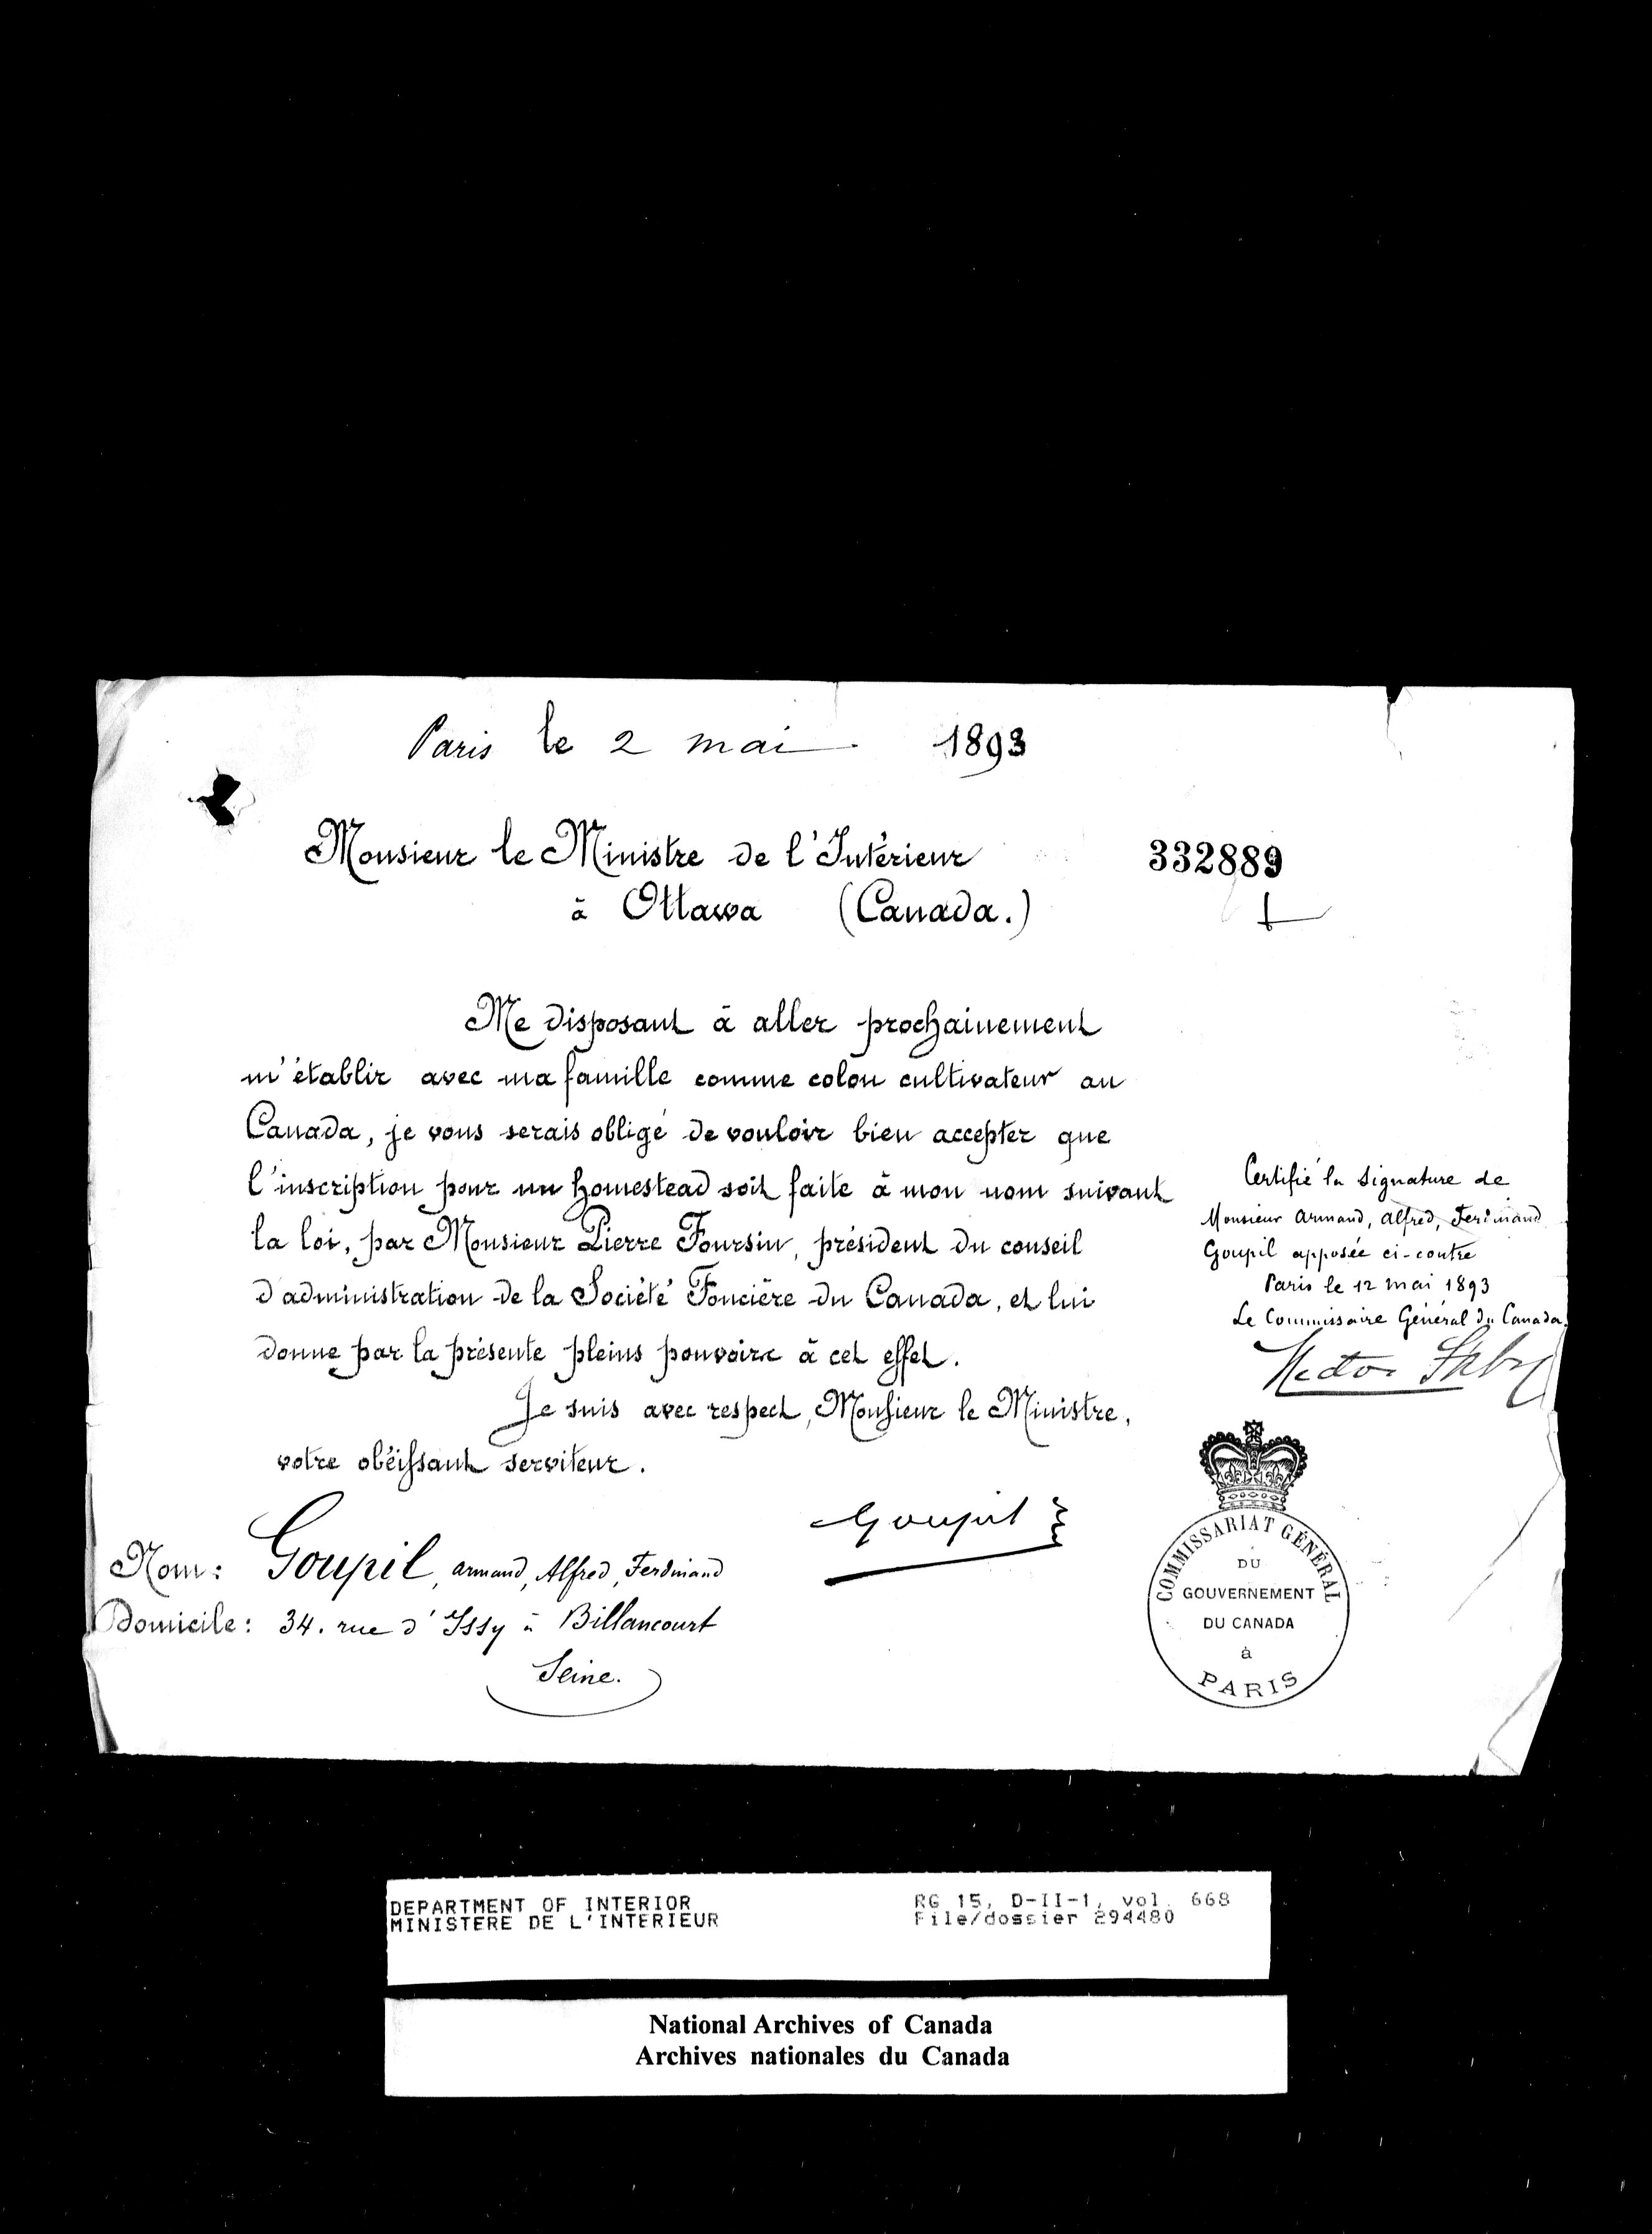 Paris le 2 mai 1893
Monsieur le Ministre de l'Intérieur
à Ottawa (Canada.)
332889
Me disposant à aller prochainement
m'établir avec ma famille comme colon cultivateur au
Canada, je vous serais obligé de vouloir bien accepter que
l'inscription pour un homestead soit faite à mon nom suivant
la loi, par Monsieur Pierre Foursin, président du conseil
d'administration de la Société Foncière du Canada, et lui
donne par la présente pleins pouvoirs à cet effet.
Je suis avec respect, Monsieur le Ministre,
votre obéissant serviteur.
Goupil
Nom: Goupil, armand, Alfred, Ferdinand
Domicile: 34. rue d'Issy à Billancourt
Seine.
Certifié la signature de
Monsieur Armand, Alfred, Ferdinand
Goupil apposée ci-contre
Paris le 12 mai 1893
Le Commissaire Général du Canada.
Hector Fabre
COMMISSARIAT GÉNÉRAL
DU
GOUVERNEMENT
DU CANADA
à
PARIS
DEPARTMENT OF INTERIOR
MINISTERE DE L'INTERIEUR
RG 15, D-II-1, vol. 668
File/dossier 294480
National Archives of Canada
Archives nationales du Canada